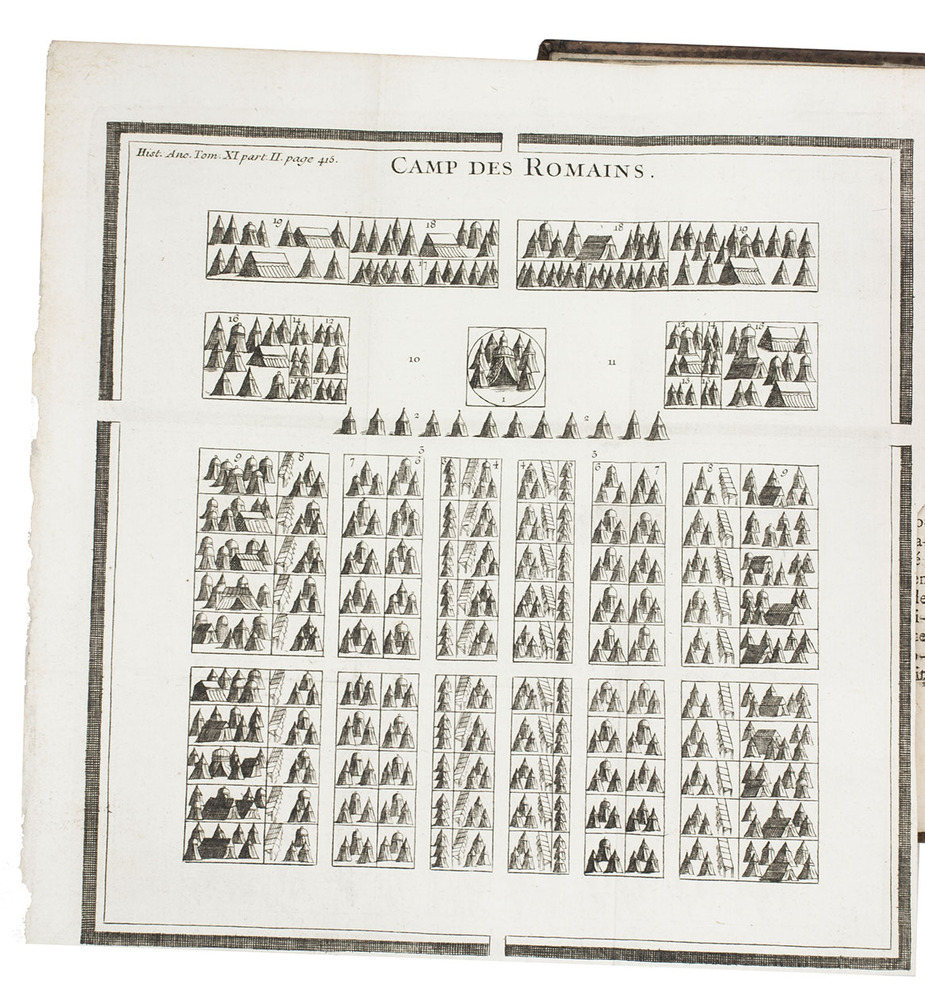 Hist. Anc. Tom. XI part. II. page 415.
CAMP DES ROMAINS.
19 18 18 19
17
16 14 12
10 1 11
16
13
1
2 2
3 3
9 8 7 6 4 4 6 7 8 9